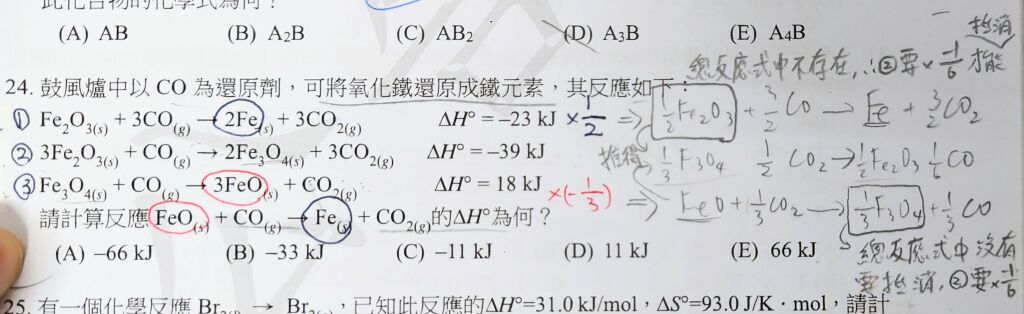 此化合物的化學式為何？
(A) AB (B) A₂B (C) AB₂ (D) A₃B (E) A₄B
抵消
總反應式中不存在,∴②要×1/6 才能
24. 鼓風爐中以 CO 為還原劑，可將氧化鐵還原成鐵元素，其反應如下：
① Fe₂O₃₍s₎ + 3CO₍g₎ → 2Fe₍s₎ + 3CO₂₍g₎ ΔH° = –23 kJ ×1/2 ⇒ 1/2Fe₂O₃ + 3/2CO → Fe + 3/2CO₂
② 3Fe₂O₃₍s₎ + CO₍g₎ → 2Fe₃O₄₍s₎ + 3CO₂₍g₎ ΔH° = –39 kJ 推得 1/3F₃O₄ 1/2CO₂ → 1/2Fe₂O₃ 1/6CO
③ Fe₃O₄₍s₎ + CO₍g₎ → 3FeO₍s₎ + CO₂₍g₎ ΔH° = 18 kJ ×(-1/3) ⇒ FeO + 1/3CO₂ → 1/3F₃O₄ + 1/3CO
請計算反應 FeO₍s₎ + CO₍g₎ → Fe₍s₎ + CO₂₍g₎的ΔH°為何？
(A) –66 kJ (B) –33 kJ (C) –11 kJ (D) 11 kJ (E) 66 kJ
總反應式中沒有
要抵消,②要×1/6
25. 有一個化學反應 Br₂₍l₎ → Br₂₍g₎，已知此反應的ΔH°=31.0 kJ/mol，ΔS°=93.0 J/K · mol，請計